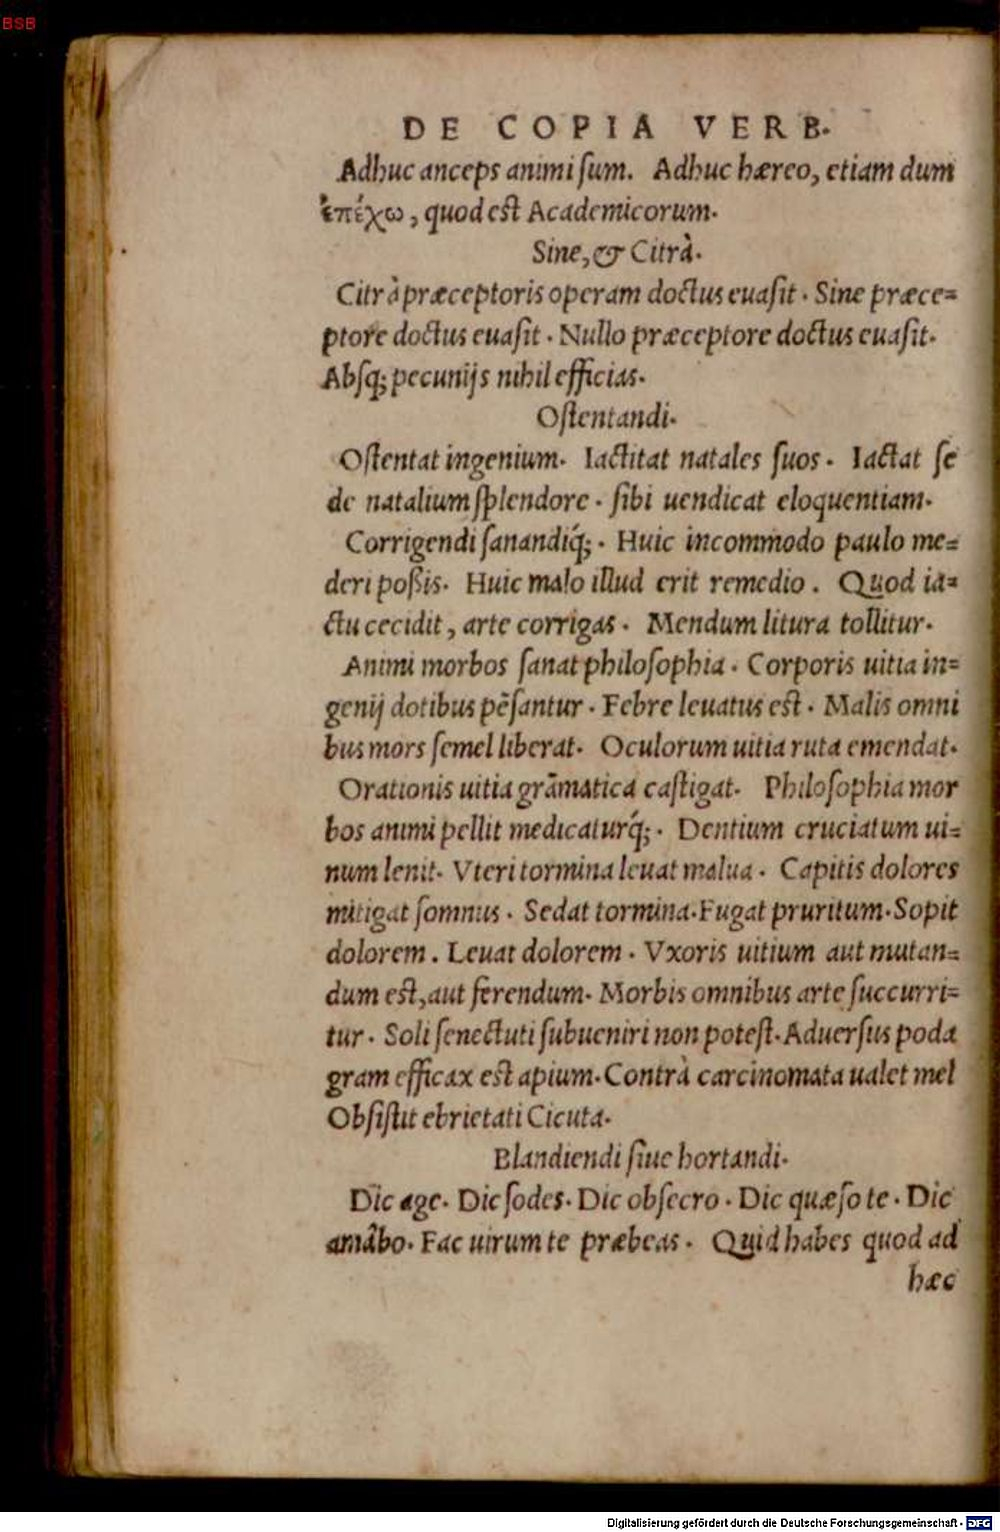 BSB
DE COPIA VERB.
Adhuc anceps animi ſum. Adhuc hæreo, etiam dum
ἐπέχω, quod eſt Academicorum.
Sine, & Citrà.
Citrà præceptoris operam doctus euaſit. Sine præce=
ptore doctus euaſit. Nullo præceptore doctus euaſit.
Abſq; pecunijs nihil efficias.
Oſtentandi.
Oſtentat ingenium. Iactitat natales ſuos. Iactat ſe
de natalium ſplendore. ſibi uendicat eloquentiam.
Corrigendi ſanandiq́;. Huic incommodo paulo me=
deri poßis. Huic malo illud erit remedio. Quod ia=
ctu cecidit, arte corrigas. Mendum litura tollitur.
Animi morbos ſanat philoſophia. Corporis uitia in=
genij dotibus pẽſantur. Febre leuatus eſt. Malis omni
bus mors ſemel liberat. Oculorum uitia ruta emendat.
Orationis uitia grãmatica caſtigat. Philoſophia mor
bos animi pellit medicaturq́;. Dentium cruciatum ui=
num lenit. Vteri tormina leuat malua. Capitis dolores
mitigat ſomnus. Sedat tormina. Fugat pruritum. Sopit
dolorem. Leuat dolorem. Vxoris uitium aut mutan=
dum eſt, aut ferendum. Morbis omnibus arte ſuccurri=
tur. Soli ſenectuti ſubueniri non poteſt. Aduerſus poda
gram efficax eſt apium. Contrà carcinomata ualet mel
Obſiſtit ebrietati Cicuta.
Blandiendi ſiue hortandi.
Dic age. Dic ſodes. Dic obſecro. Dic quæſo te. Dic
amabo. Fac uirum te præbeas. Quid habes quod ad
hæc
Digitalisierung gefördert durch die Deutsche Forschungsgemeinschaft - DFG